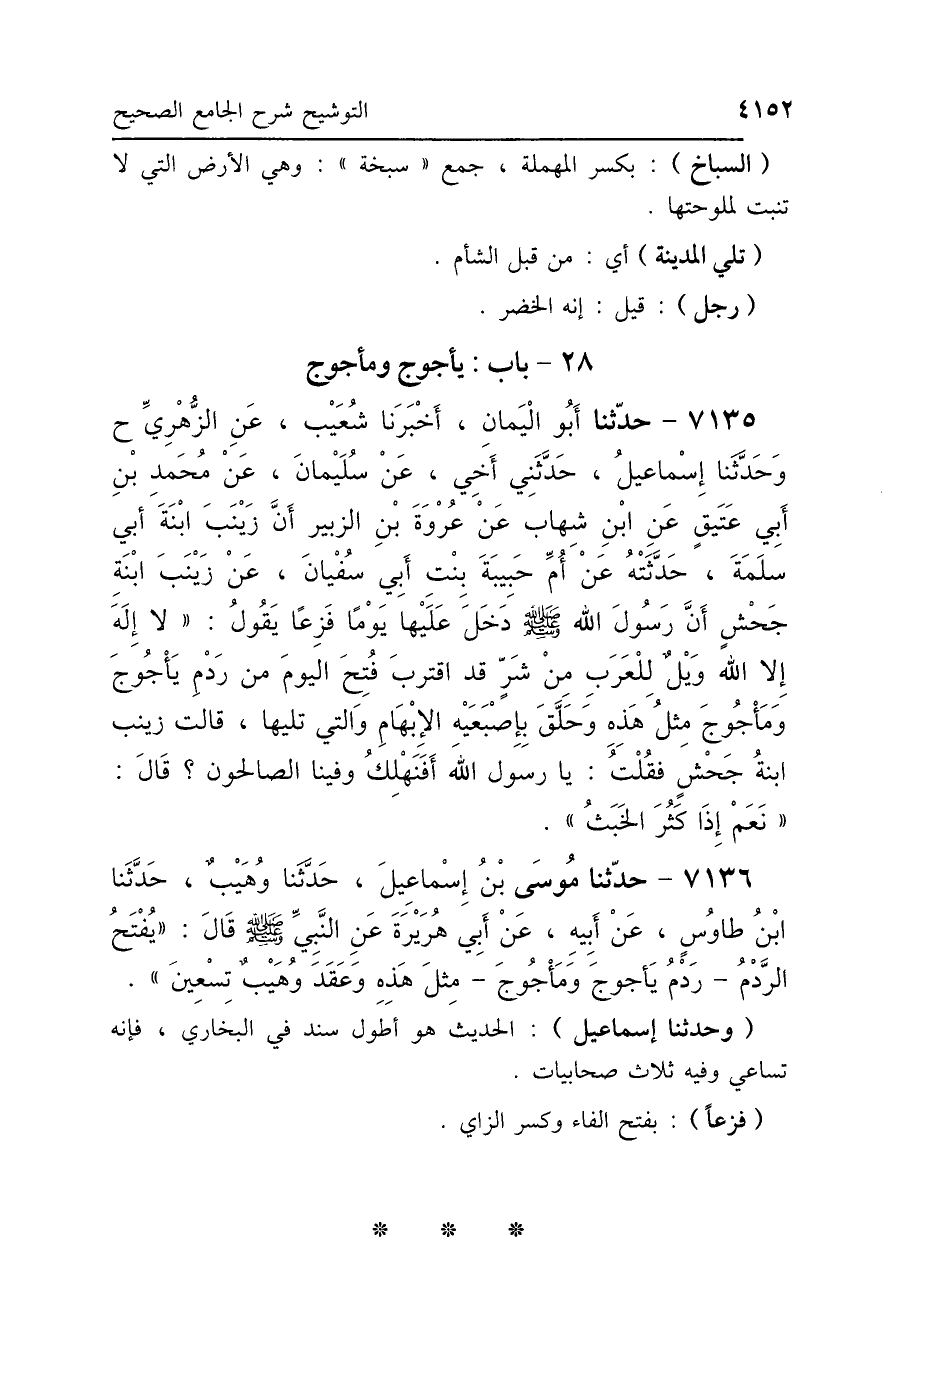 ٤١٥٢ التوشيح شرح الجامع الصحيح
( السباخ ) : بكسر المهملة ، جمع « سبخة » : وهي الأرض التي لا
تنبت لملوحتها .
( تلي المدينة ) أي : من قبل الشأم .
( رجل ) : قيل : إنه الخضر .
٢٨ - باب : يأجوج ومأجوج
٧١٣٥ - حدّثنا أَبُو الْيَمانِ ، أَخْبَرَنَا شُعَيْب ، عَنِ الزُّهْرِيِّ ح
وَحَدَّثَنا إِسْماعيلُ ، حَدَّثَنِي أَخِي ، عَنْ سُلَيْمانَ ، عَنْ مُحَمدِ بْنِ
أَبِي عَتَيقٍ عَنِ ابْنِ شِهاب عَنْ عُرْوَةَ بْنِ الزبير أَنَّ زَيْنَبَ ابْنَةَ أَبي
سلَمَةَ ، حَدَّثَتْهُ عَنْ أُمِّ حَبِيبَةَ بِنْتِ أَبي سفْيانَ ، عَنْ زَيْنَبَ ابْنَةِ
جَحْشٍ أَنَّ رَسُولَ الله ﷺ دَخَلَ عَلَيْها يَوْمًا فَزِعًا يَقُولُ : « لا إِلَهَ
إِلا الله وَيْلٌ لِلْعَرَبِ مِنْ شَرٍّ قد اقتربَ فُتِحَ اليومَ من رَدْمِ يَأْجُوجَ
وَمَأْجُوجَ مِثلُ هَذِهِ وَحَلَّقَ بِإِصْبَعَيْهِ الإِبْهَامِ وَالتي تليها ، قالت زينب
ابنةُ جَحْشٍ فقُلْتُ : يا رسول الله أَفَنَهْلِكُ وفينا الصالحون ؟ قَالَ :
« نَعَمْ إِذَا كَثُرَ الخَبَثُ » .
٧١٣٦ - حدّثنا مُوسَى بْنُ إِسْماعِيلَ ، حَدَّثَنا وُهَيْبٌ ، حَدَّثَنا
ابْنُ طاوُسٍ ، عَنْ أَبِيهِ ، عَنْ أَبي هُرَيْرَةَ عَنِ النَّبِيِّ ﷺ قَالَ : «يُفْتَحُ
الرَّدْمُ - رَدْمُ يَأجوجَ وَمَأْجُوجَ - مِثلَ هَذِهِ وَعَقَدَ وُهَيْبٌ تسْعِينَ » .
( وحدثنا إسماعيل ) : الحديث هو أطول سند في البخاري ، فإنه
تساعي وفيه ثلاث صحابيات .
( فزعاً ) : بفتح الفاء وكسر الزاي .
* * *